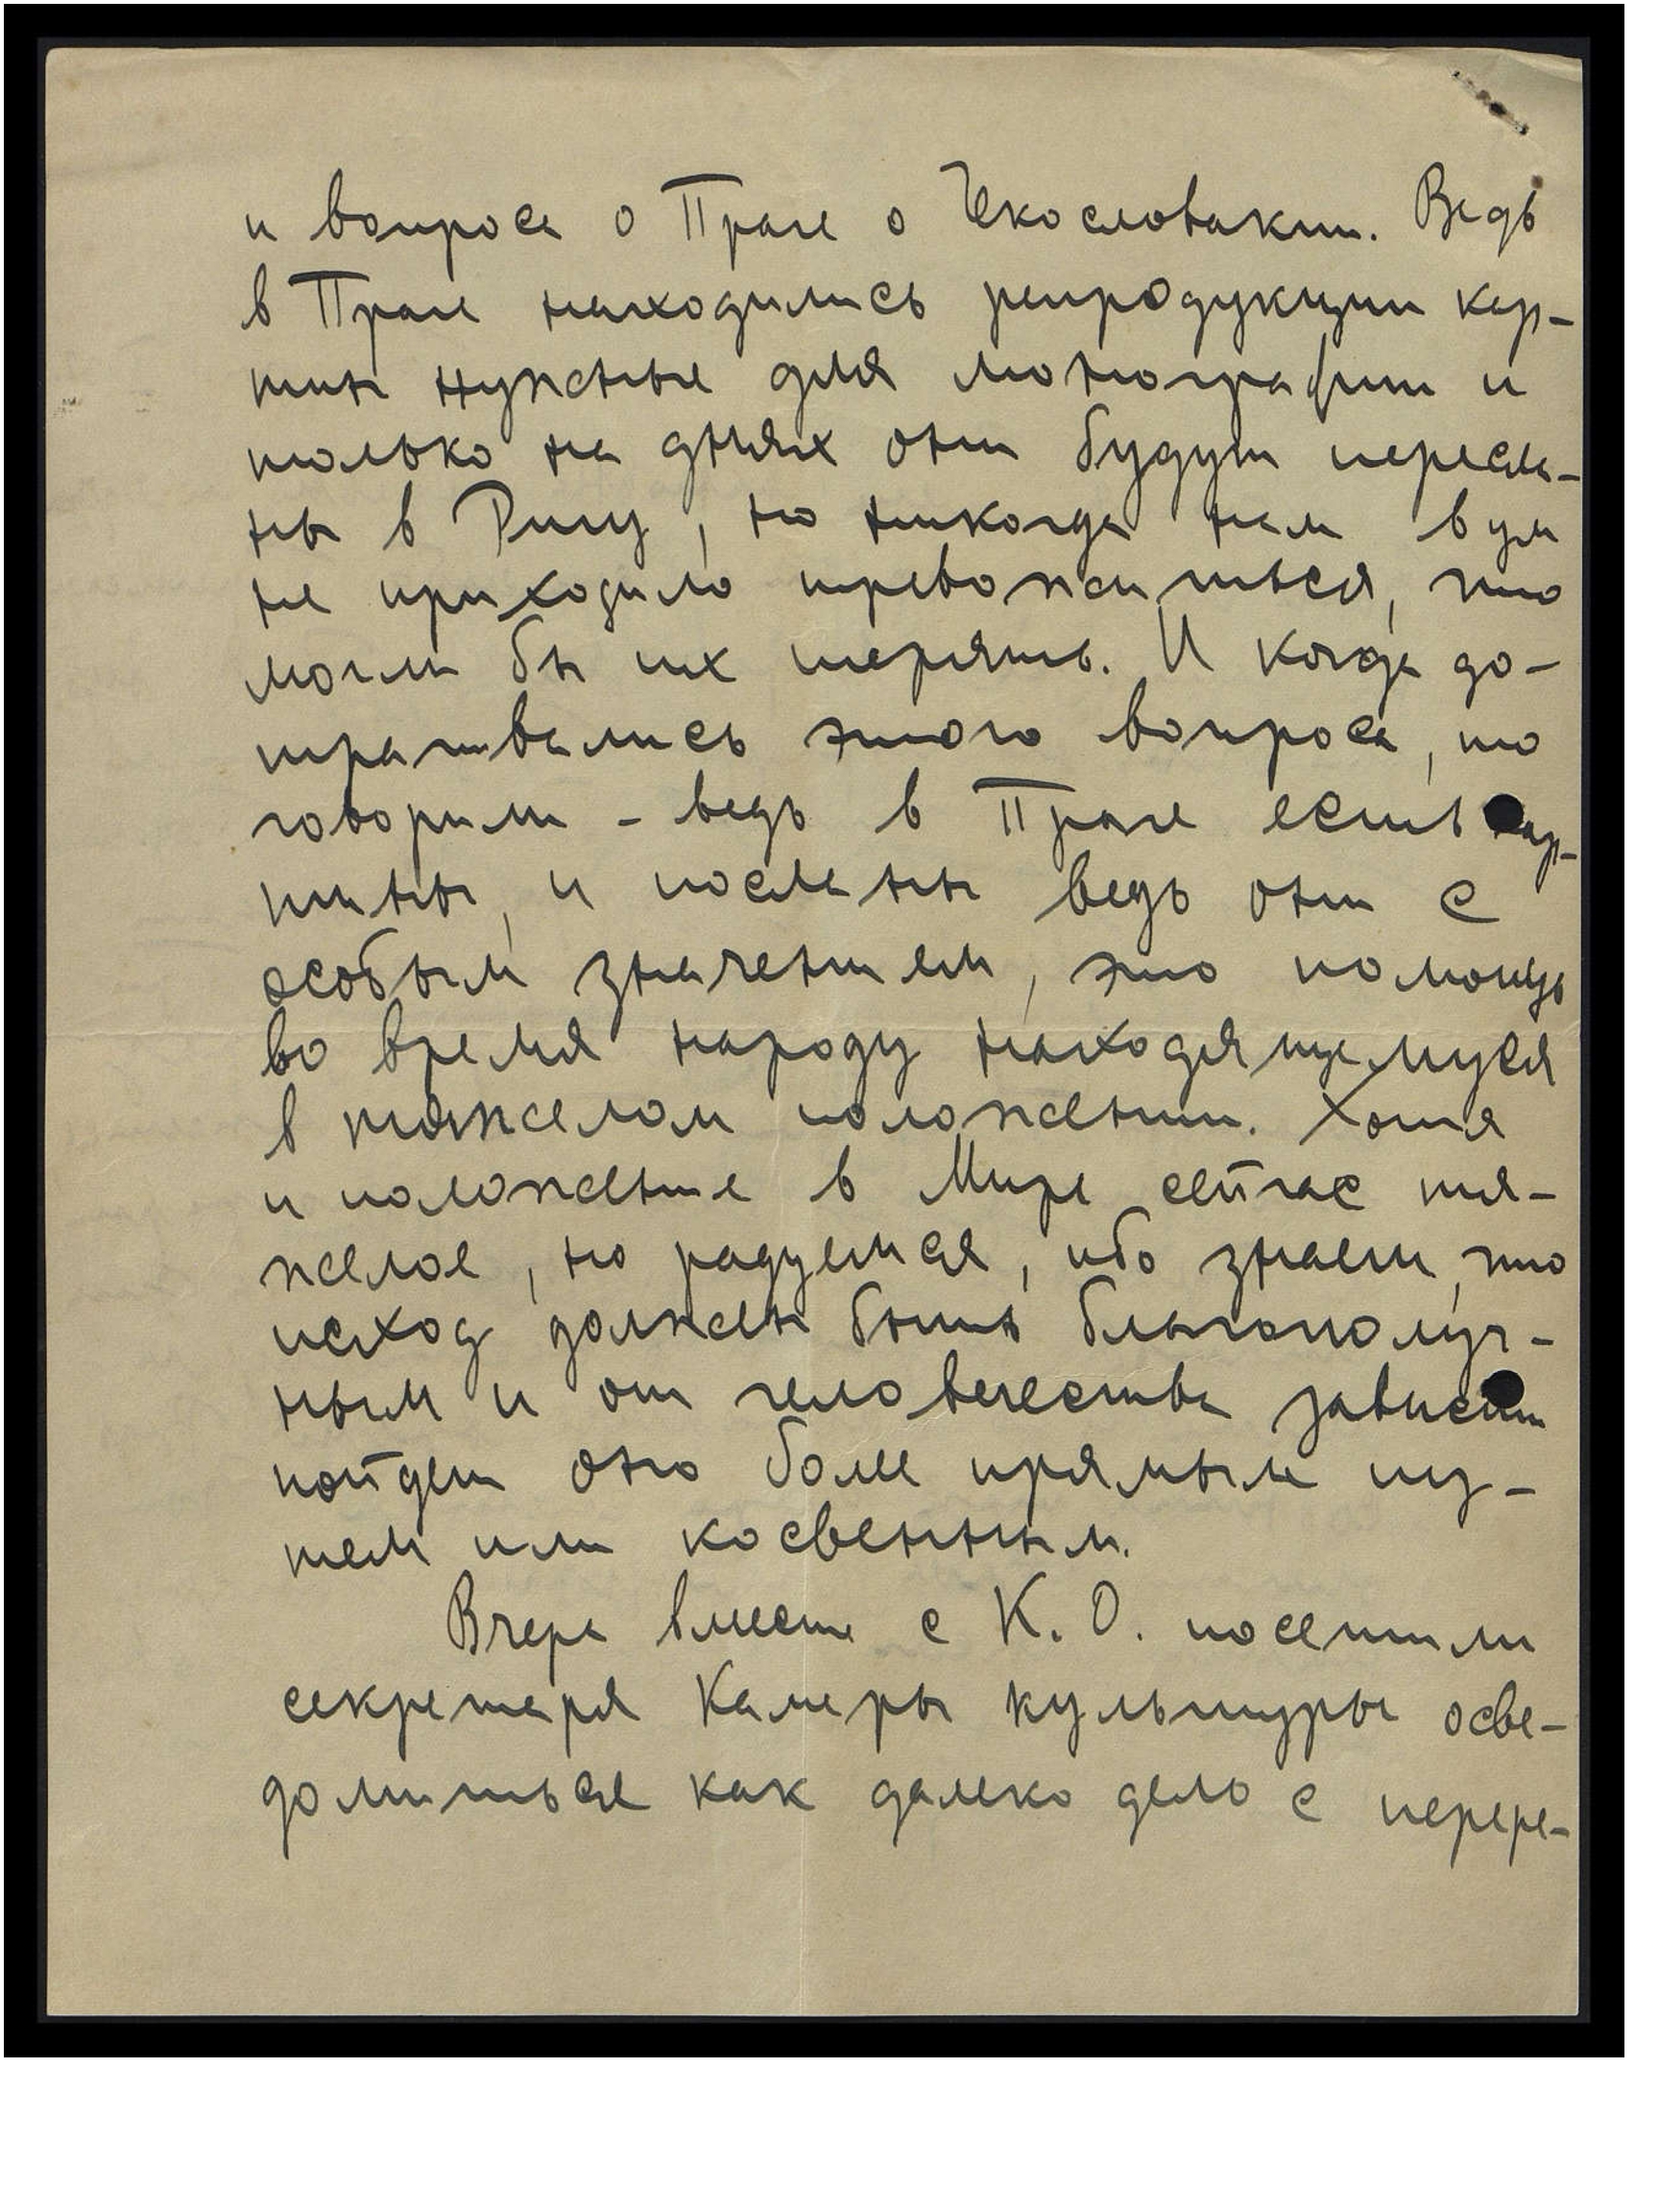 и вопроса о Праге о Чекословакии. Ведь
в Праге находились репродукции кар-
тин нужные для монографии и
только на днях они будут пересла-
ны в Ригу, но никогда нам в ум
не приходило тревожиться, что
могли бы их терять. И когда до-
трагивались этого вопроса, то
говорили - ведь в Праге есть кар-
тины, и посланы ведь они с
особым значением, это помощь
во время народу находящемуся
в тяжелом положении. Хотя
и положение в Мире сейчас тя-
желое, но радуемся, ибо знаем, что
исход должен быть благополуч-
ным и от человечества зависит
пойдет оно более прямым пу-
тем или косвенным.
Вчера вместе с К. О. посетили
секретаря Камеры культуры осве-
домиться как далеко дело с перере-